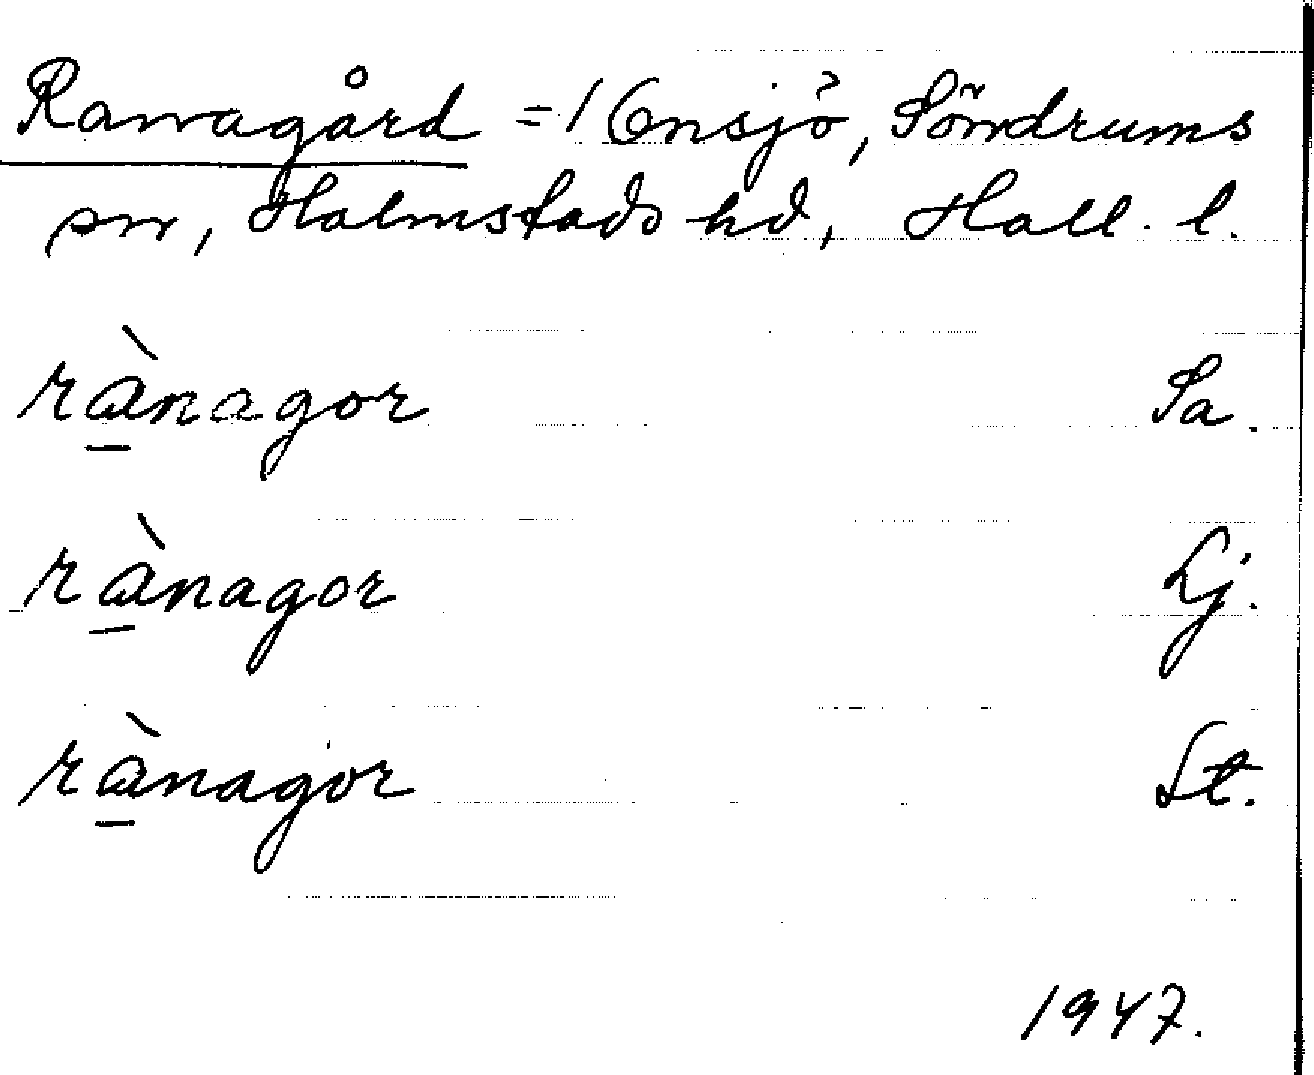 Ranagård = 16nsjö, Söndrums
sn, Halmstads hd, Hall. l.
rànagor Sa.
rànagor Lj.
rànagor St.
1947.